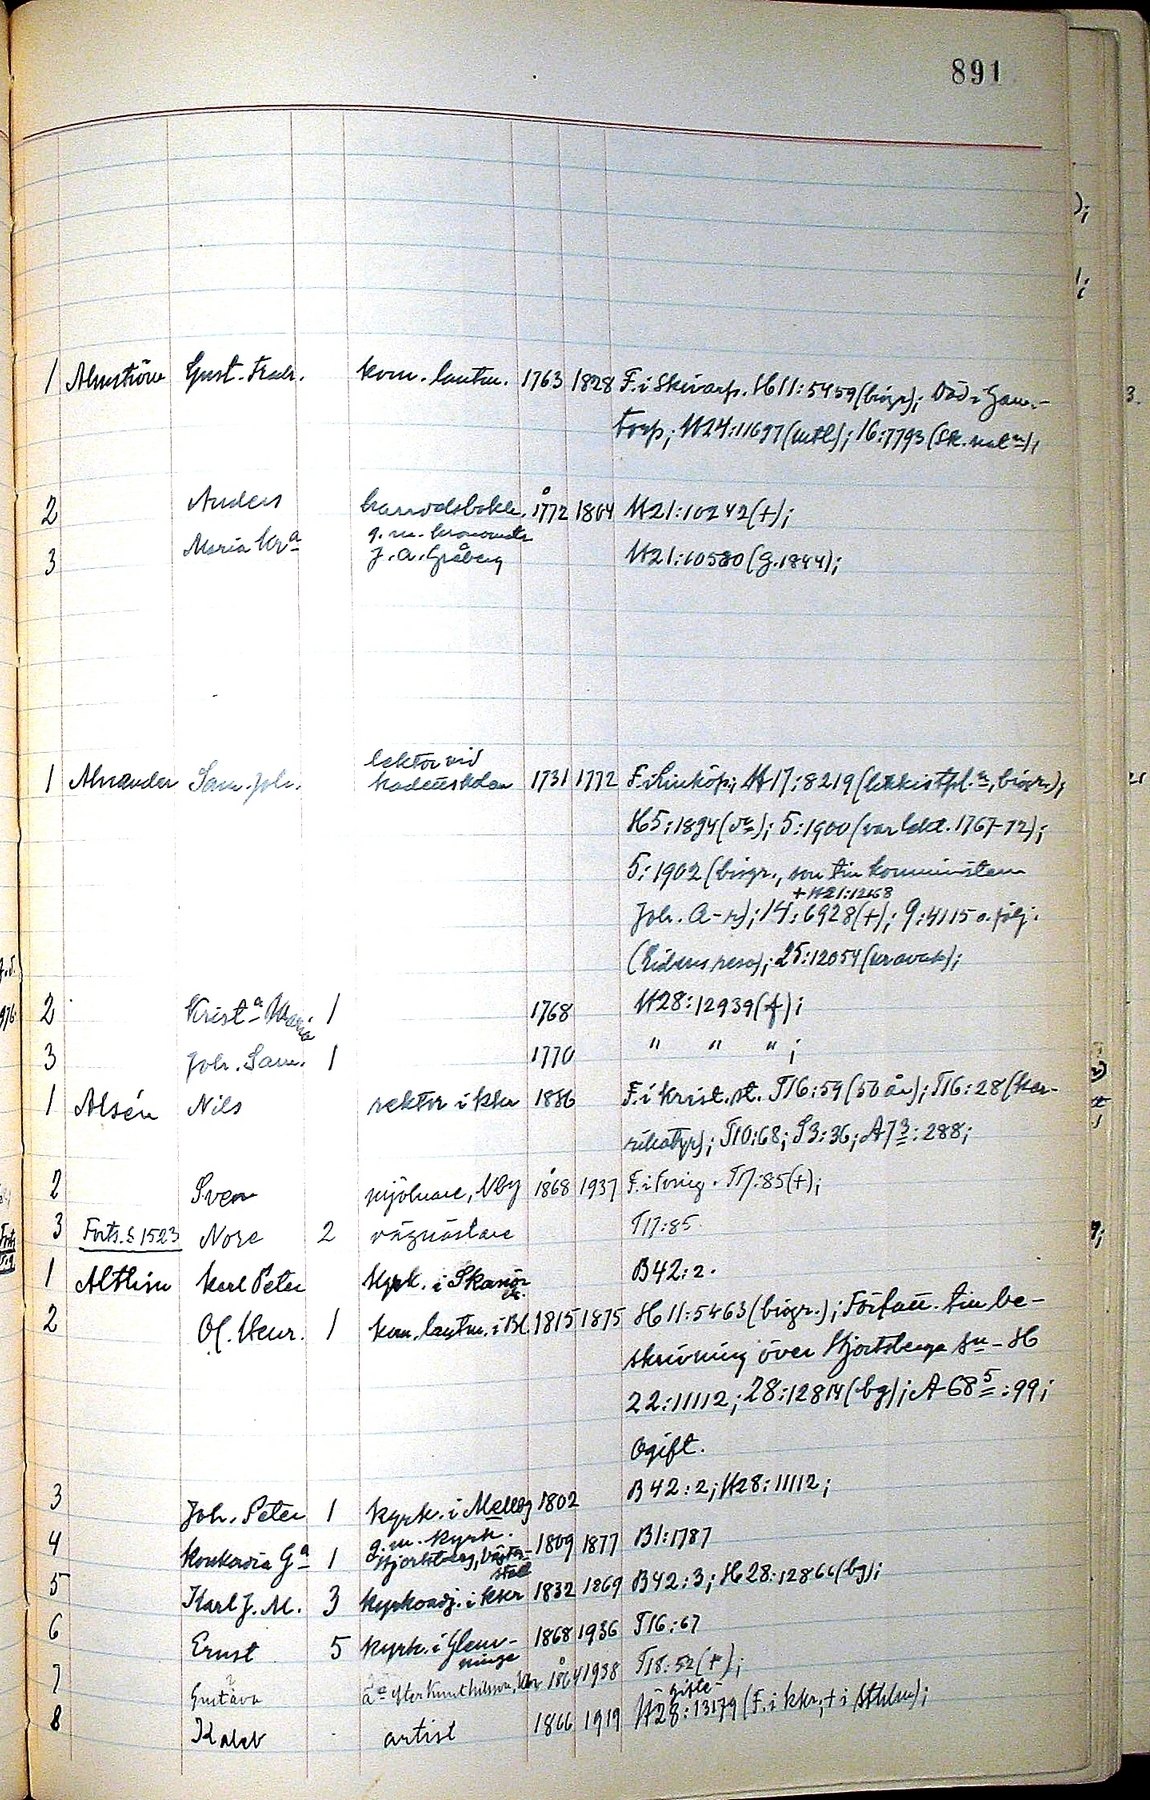 891
1 Almström Gust. Fredr. kom. lantm. 1763 1828 F. i Skivarp. H11:5459 (biogr); Död i Jam.-
torp; H24:11697 (mtl); 16:7793 (Sk. nat n);
2 Anders 1772 1804 H21:10242 (+);
3 Maria Kra g. m. J. A. Gråberg H21:10580 (g. 1844);
1 Alnander Sam. Joh. lektor vid
kadettskolan 1731 1772 F. i Linköp; H17:8219 biogr.);
H5:1894 (do); 5:1900 (var lekt. 1767-72);
5:1902 (biogr., son till komministern
+ H21:12168
Joh. A-r); 14:6928 (+); 9:4115 o. följ.
resa); 25:12054
2 Krista Maria 1 1768 H28:12939 (f);
3 Joh. Sam. 1 1770 " " " ;
1 Alsén Nils rektor i kkr 1886 F. i Krist. st. T16:59 (50 år); T16:28 (kar-
rikatyr); T10:68; S3:36; A73:288;
2 Sven mjölnare, Vby 1868 1937 T17:85 (+);
3 Forts. s 1523 Nore 2 vägmästare T17:85
1 Althin Karl Peter kyrk. i Skanör B42:2.
2 Ol. Henr. 1 kom. lantm. i Bl. 1815 1875 H11:5463 (biogr.); Författ. till be-
skrivning över Hjortsberga sn - H
22:11112; 28:12814 (bg); A 685:99;
Ogift.
3 Joh. Peter 1 kyrk. i Mellby 1802 B42:2; H28:11112;
4 Konkordia Ga 1 g. m. kyrk.
Hjortsberg, 1809 1877 B1:1787
5 Karl J. M. 3 kyrkoadj. i kkr 1832 1869 B42:3; H28:12866 (bg);
6 Ernst 5 kyrk. i Glem-
minge 1868 1936 T16:67
7 Gustava efter Knut Nilsson, 1864 1938 T18:52 (+);
8 Kaleb artist 1866 1919 H28:13179 (F. i kkr; + i Sthlm);